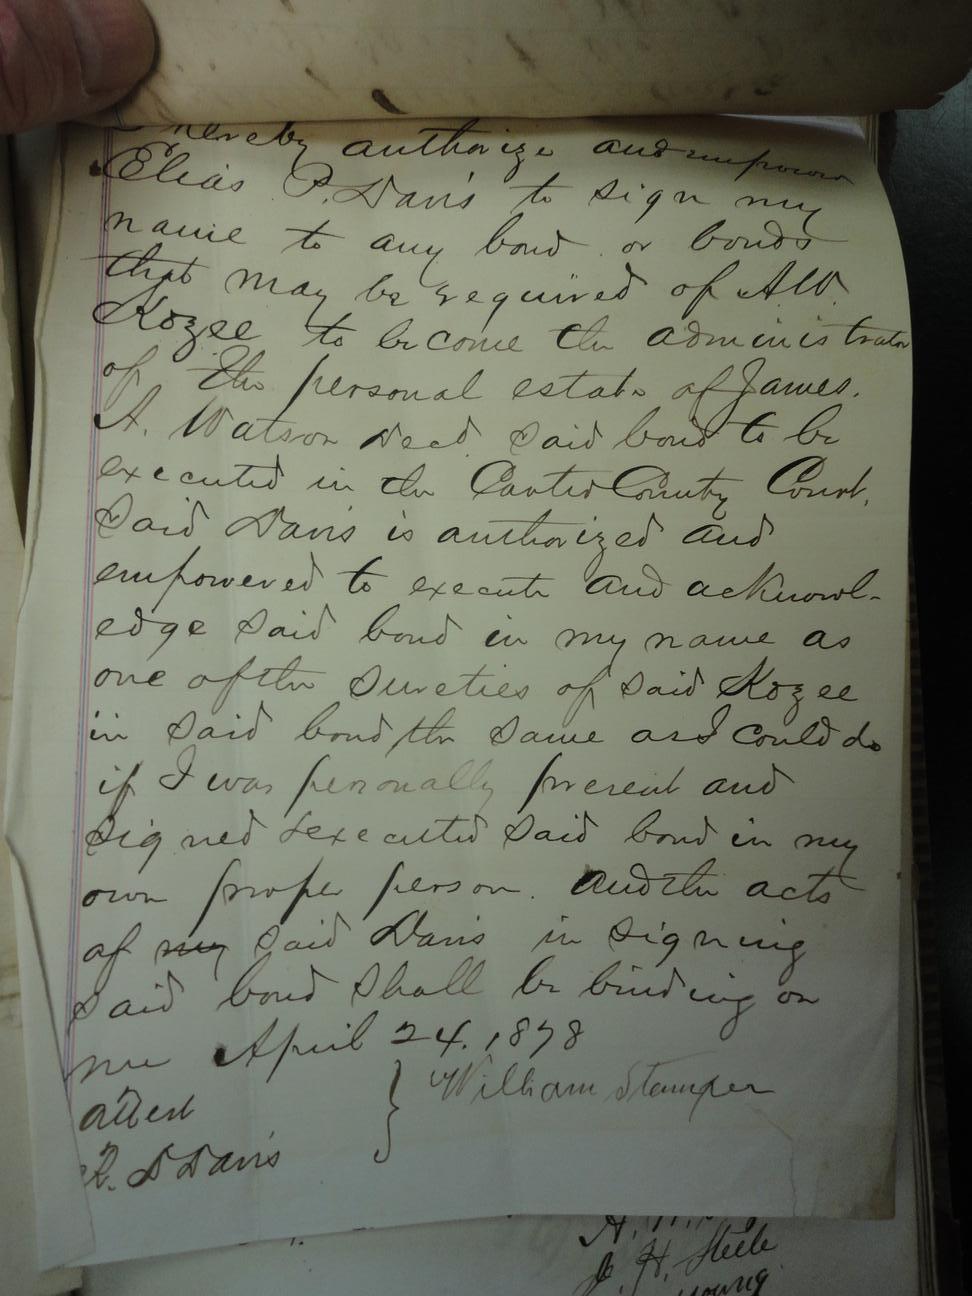 I hereby authorize and empower
Elias P. Davis to sign my
name to any bond or bonds
that may be required of A.W.
Kozee to become the administrator
of the personal estate of James.
A. Watson Decd. Said bond to be
executed in the Carter County Court.
Said Davis is authorized and
empowered to execute and acknowl-
edge said bond in my name as
one of the sureties of said Kozee
in said bond the same as I could do
if I was personally present and
signed & executed said bond in my
own proper person. And the acts
of my said Davis in signing
said bond shall be binding on
me April 24. 1878
attest } William Stamper
R. D Davis
J. H. Steele
young